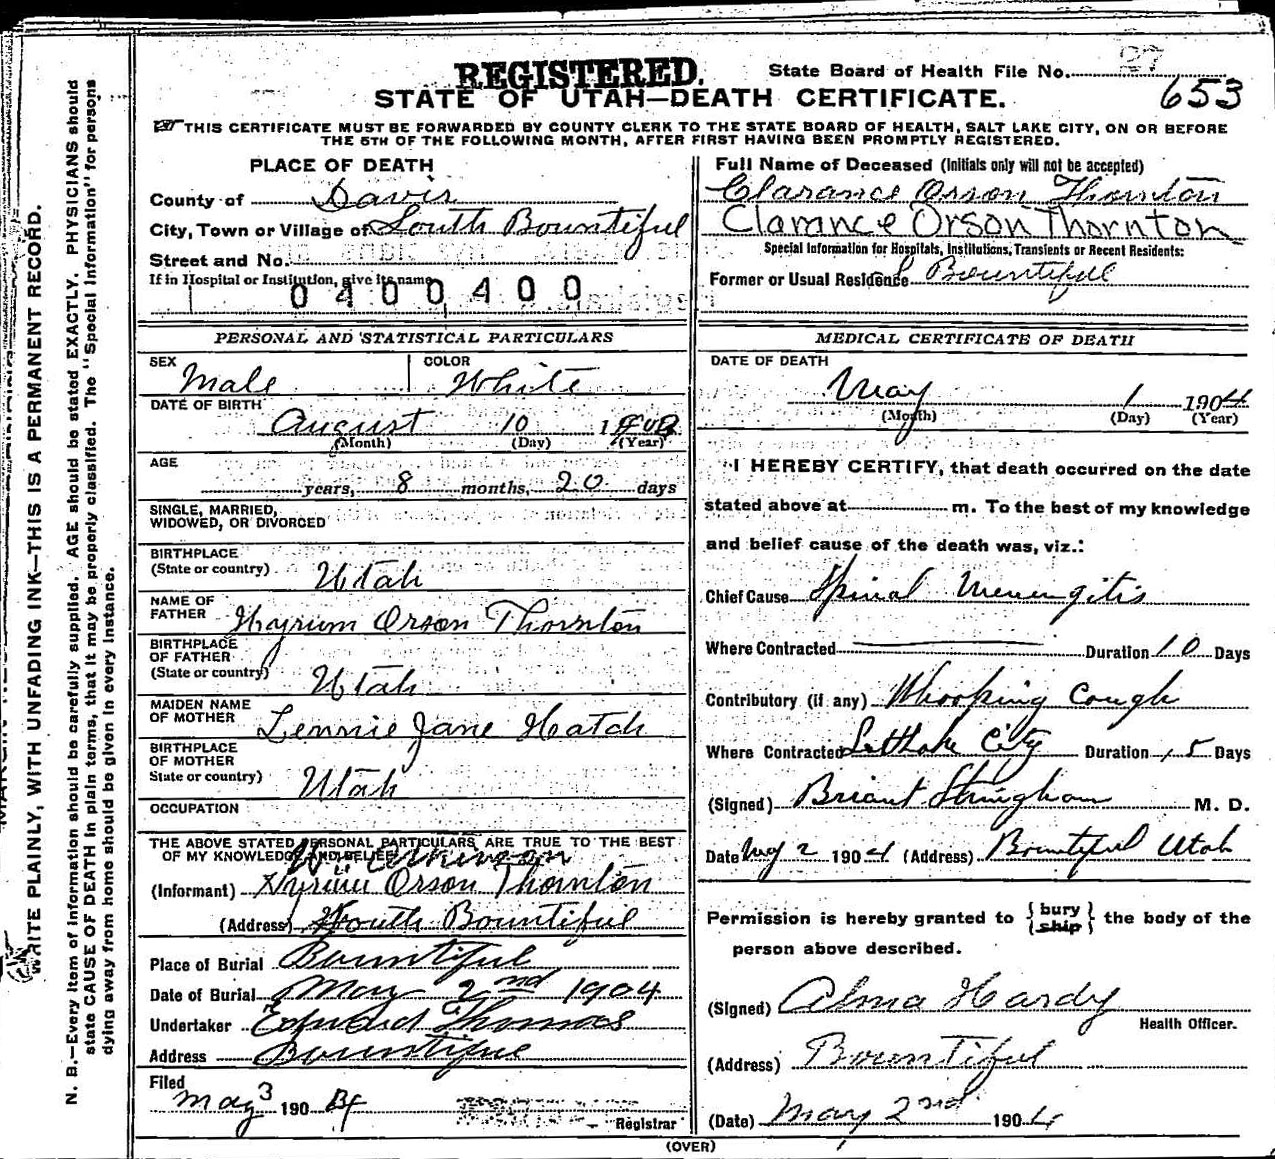 27
REGISTERED.
State Board of Health File No.
653
STATE OF UTAH—DEATH CERTIFICATE.
THIS CERTIFICATE MUST BE FORWARDED BY COUNTY CLERK TO THE STATE BOARD OF HEALTH, SALT LAKE CITY, ON OR BEFORE
THE 5TH OF THE FOLLOWING MONTH, AFTER FIRST HAVING BEEN PROMPTLY REGISTERED.
WRITE PLAINLY, WITH UNFADING INK—THIS IS A PERMANENT RECORD.
N. B.—Every item of information should be carefully supplied. AGE should be stated EXACTLY. PHYSICIANS should
state CAUSE OF DEATH in plain terms, that it may be properly classified. The "Special Information" for persons
dying away from home should be given in every instance.
PLACE OF DEATH
County of Davis
City, Town or Village of South Bountiful
Street and No.
If in Hospital or Institution, give its name
0400400
PERSONAL AND STATISTICAL PARTICULARS
SEX Male COLOR White
DATE OF BIRTH
August 10
(Month) (Day) (Year)
AGE
years, 8 months, 20 days
SINGLE, MARRIED,
WIDOWED, OR DIVORCED
BIRTHPLACE
(State or country) Utah
NAME OF
FATHER Hyrum Orson Thornton
BIRTHPLACE
OF FATHER
(State or country) Utah
MAIDEN NAME
OF MOTHER Lennie Jane Hatch
BIRTHPLACE
OF MOTHER
State or country) Utah
OCCUPATION
THE ABOVE STATED PERSONAL PARTICULARS ARE TRUE TO THE BEST
OF MY KNOWLEDGE AND BELIEF
(Informant) Hyrum Orson Thornton
(Address) South Bountiful
Place of Burial Bountiful
Date of Burial May 2nd 1904
Undertaker Edward Thomas
Address Bountiful
Filed
May 3 190 4
Registrar
Full Name of Deceased (Initials only will not be accepted)
Clarance Orson Thornton
Clarance Orson Thornton
Special Information for Hospitals, Institutions, Transients or Recent Residents:
Former or Usual Residence S Bountiful
MEDICAL CERTIFICATE OF DEATH
DATE OF DEATH
May 1 1904
(Month) (Day) (Year)
I HEREBY CERTIFY, that death occurred on the date
stated above at m. To the best of my knowledge
and belief cause of the death was, viz.:
Chief Cause Spinal Meningitis
Where Contracted Duration 10 Days
Contributory (if any) Whooping Cough
Where Contracted Salt Lake City Duration 15 Days
(Signed) Briant Stringham M. D.
Date May 2 1904 (Address) Bountiful Utah
Permission is hereby granted to {bury ship} the body of the
person above described.
(Signed) Alma Hardy
Health Officer.
(Address) Bountiful
(Date) May 2nd 1904
(OVER)